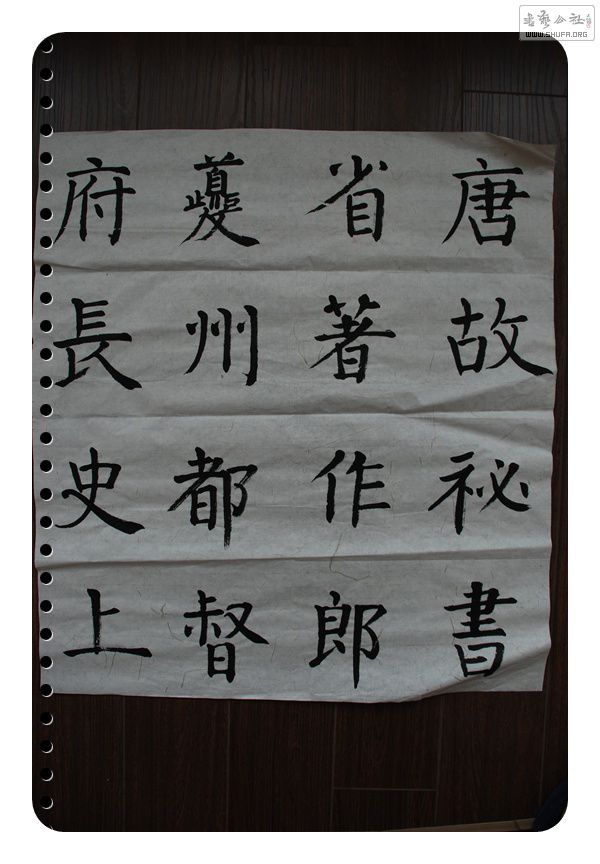 唐故祕書
省著作郎
夔州都督
府長史上
WWW.SHUFA.ORG